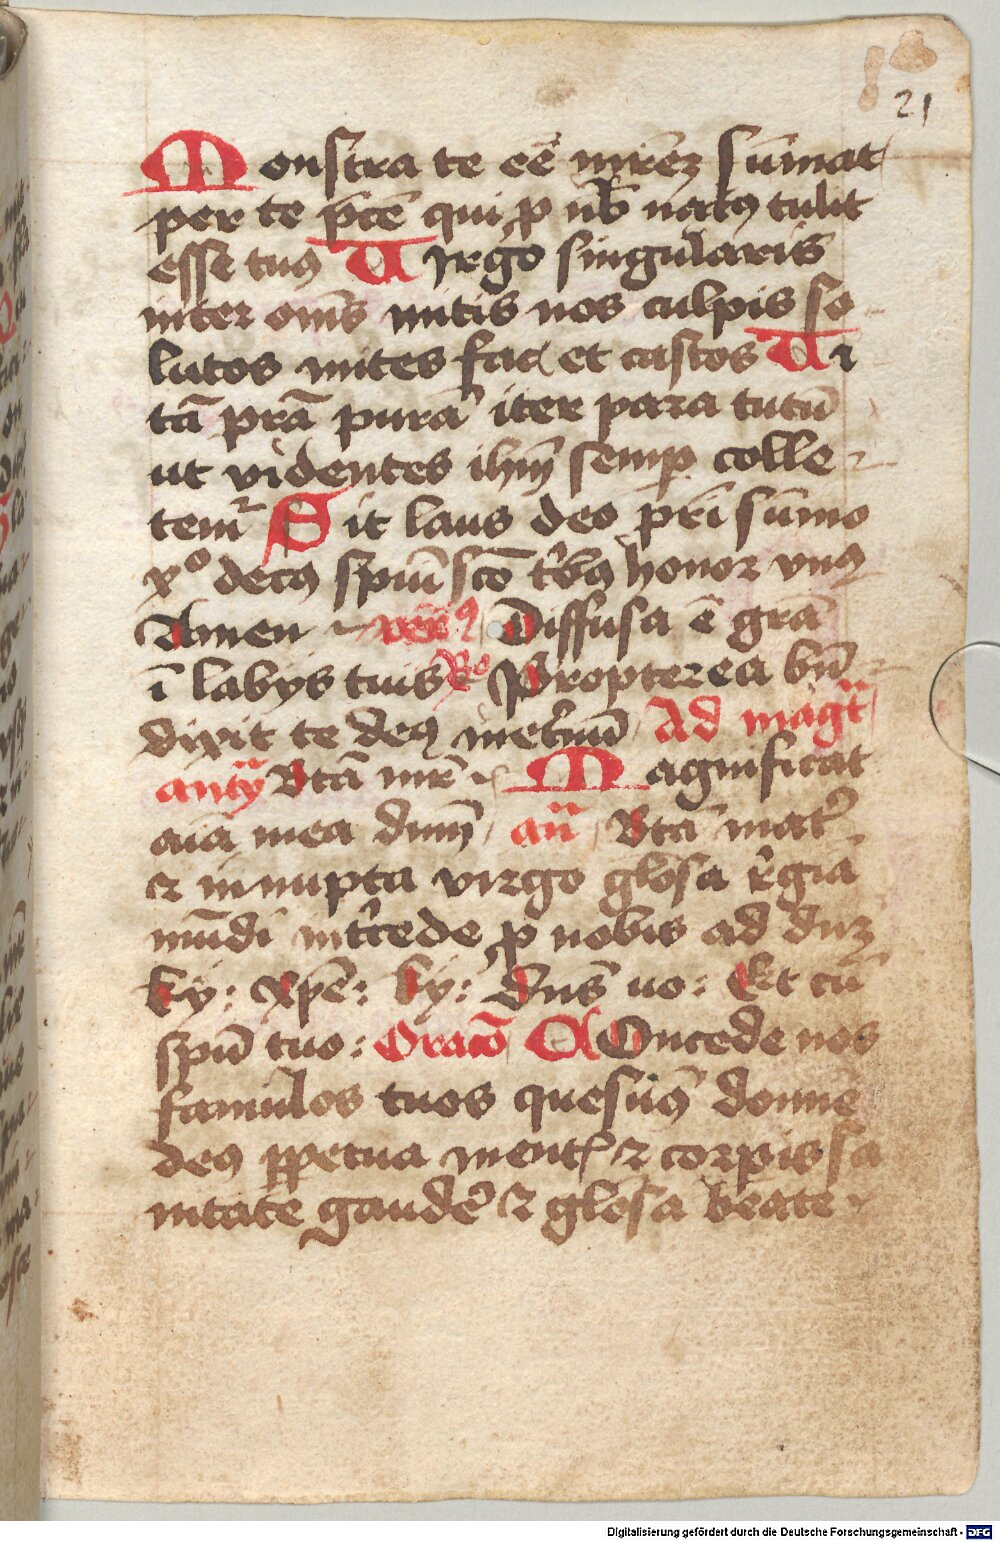 21
Monstra te eē mrēꝫ sūmat
per te p̄cē qui ꝓ nb̄ natꝰ tulit
esse tuꝰ Uirgo singularis
inter om̄s mitis nos culpis so
lutos mites fac et castos Ui
tā prā purā iter para tutū
ut videntes ihm̄ semp colle
temr Sit laus deo pr̄i sūmo
xº decꝰ spūi scō tbꝰ honor vnꝰ
Amen Diffusa ē grā
ī labys tuis Rº Propterea bn̄
dixit te deꝰ inet̄nū Ad magt
anty Btā mr̄ Magnificat
aīa mea dnm̄ an̄ Btā mat̄
⁊ innupta virgo glōsa r̄gīa
mūdi int̄cede ꝓ nobis ad dnꝫ
ky: xp̄e: ky: Dn̄s uo: Et cū
spū tuo: Oracō Concede nos
famulos tuos quesum̄ domīe
deꝰ ꝑpetua ment ⁊ corpis sa
nitate gaudē ⁊ glōsa beate
Digitalisierung gefördert durch die Deutsche Forschungsgemeinschaft - DFG